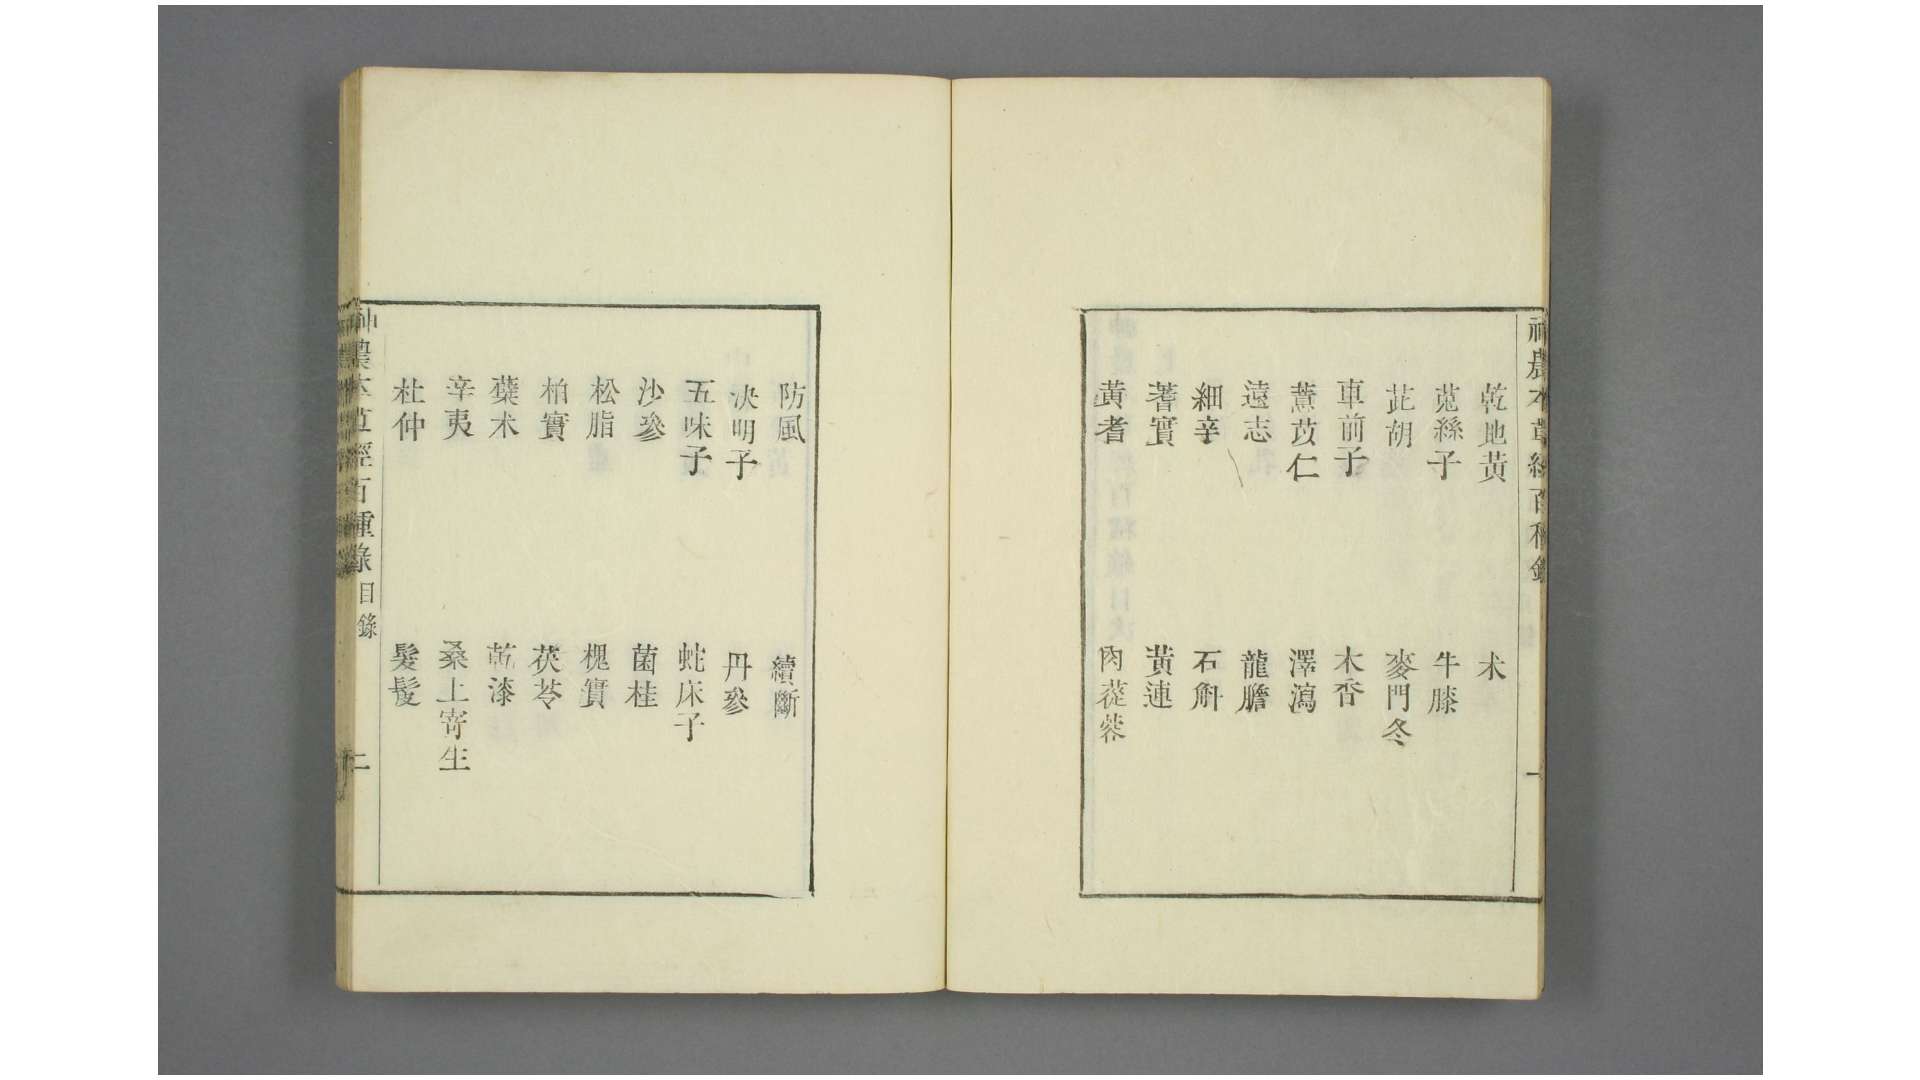 神農本草經百種錄
一
乾地黃
朮
菟絲子
牛膝
茈胡
麥門冬
車前子
木香
薏苡仁
澤瀉
遠志
龍膽
細辛
石斛
蓍實
黃連
黃耆
肉蓯蓉
防風
續斷
決明子
丹參
五味子
蛇床子
沙參
菌桂
松脂
槐實
柏實
茯苓
蘗木
乾漆
辛夷
桑上寄生
杜仲
髮髲
神農本草經百種錄 目錄
二